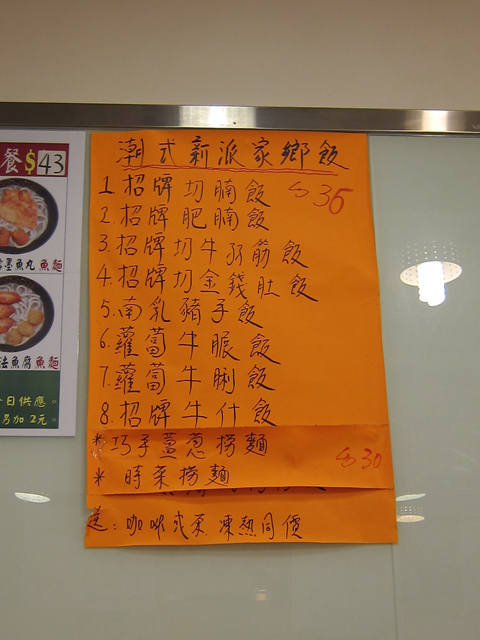 潮式新派家鄉飯
1.招牌切腩飯 $36
2.招牌肥腩飯
3.招牌切牛孖筋飯
4.招牌切金錢肚飯
5.南乳豬手飯
6.蘿蔔牛腒飯
7.蘿蔔牛脷飯
8.招牌牛什飯
*巧手薑蔥撈麵 $30
*時菜撈麵
送:咖啡或茶凍熱同價
餐$43
墨魚丸魚麵
法魚腐魚麵
日供應。
另加2元。